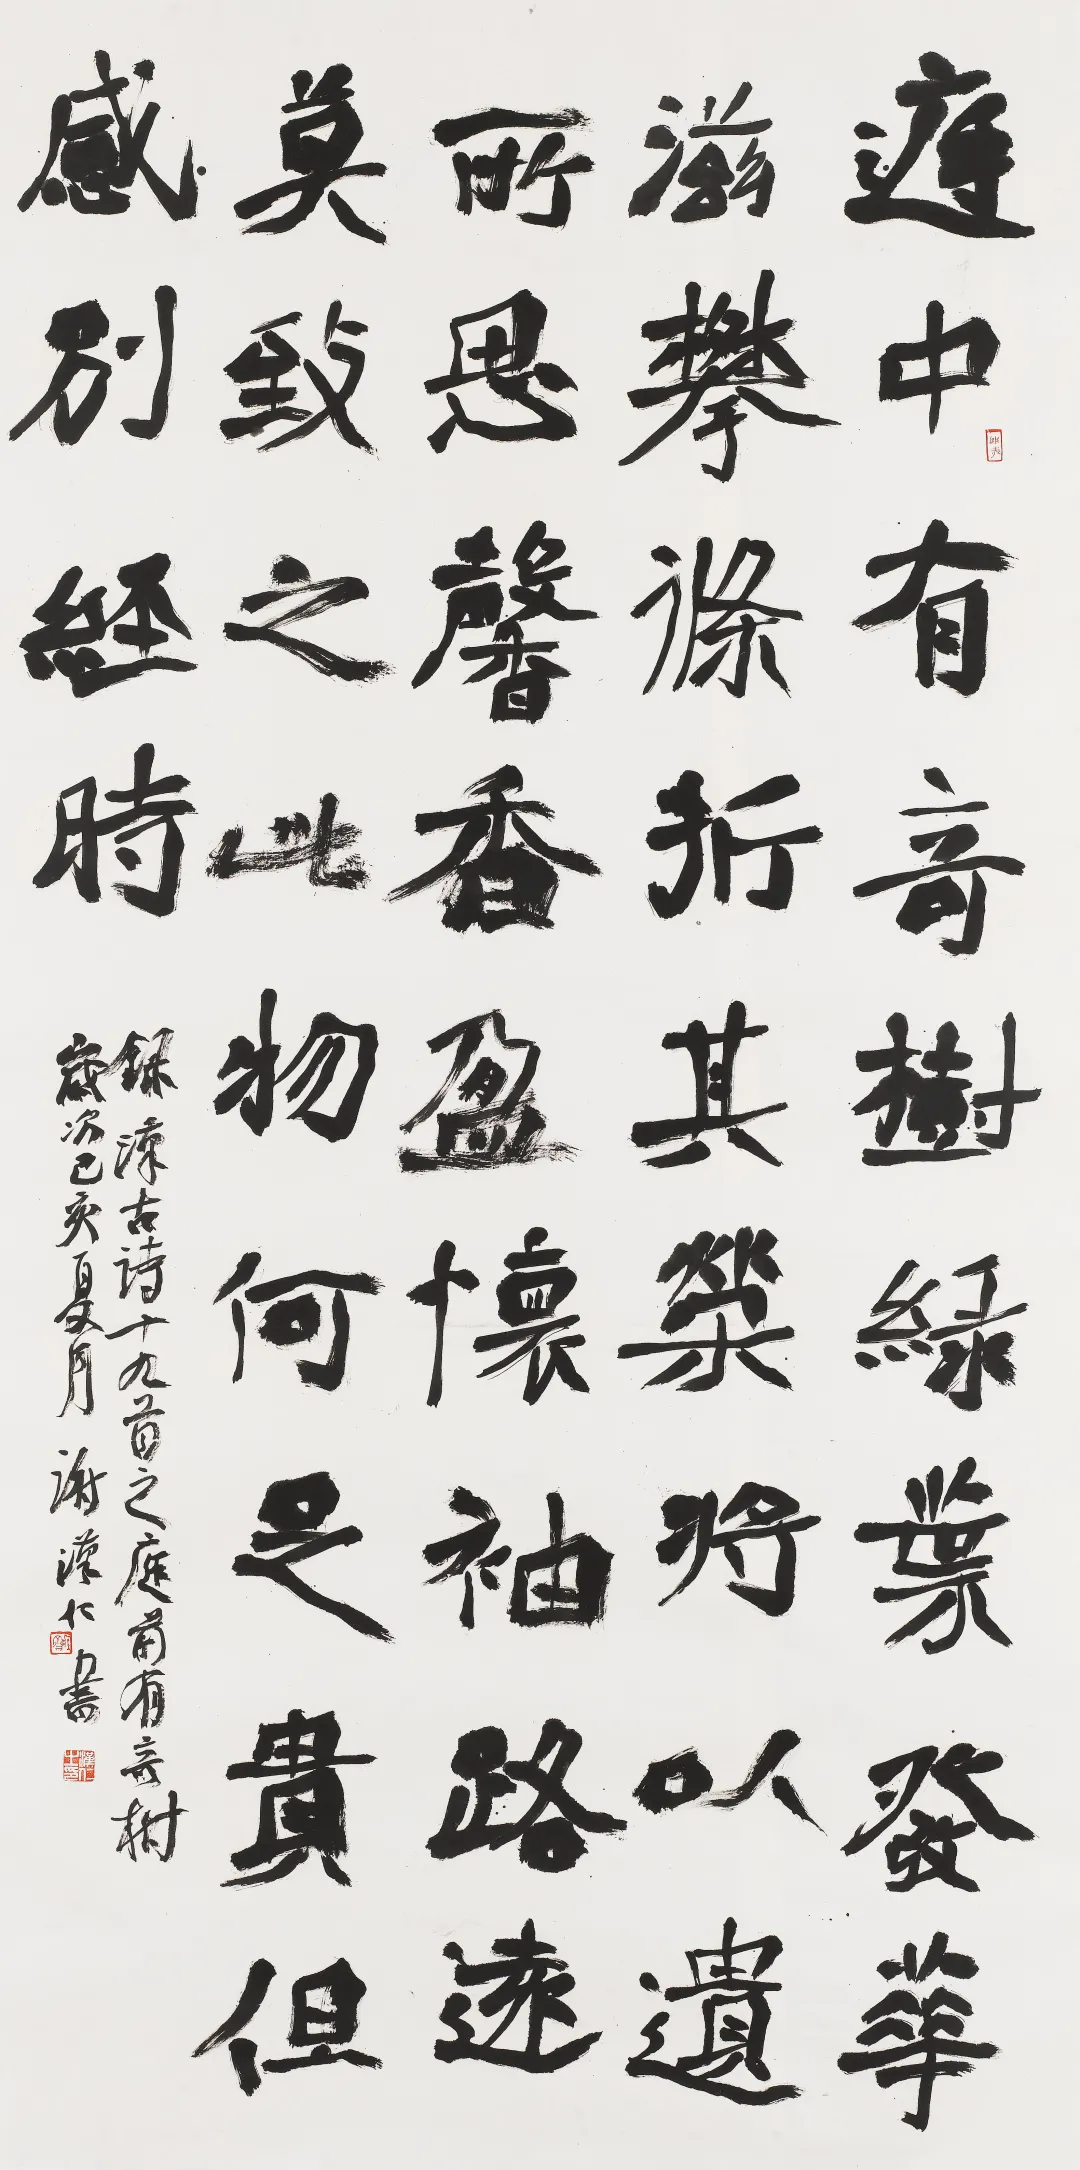 庭中有奇樹緑葉發華
滋攀條折其榮將以遺
所思馨香盈懷袖路遠
莫致之此物何足貴但
感別經時
録漢古詩十九首之庭前有奇樹
歲次己亥夏月謝漢仁書